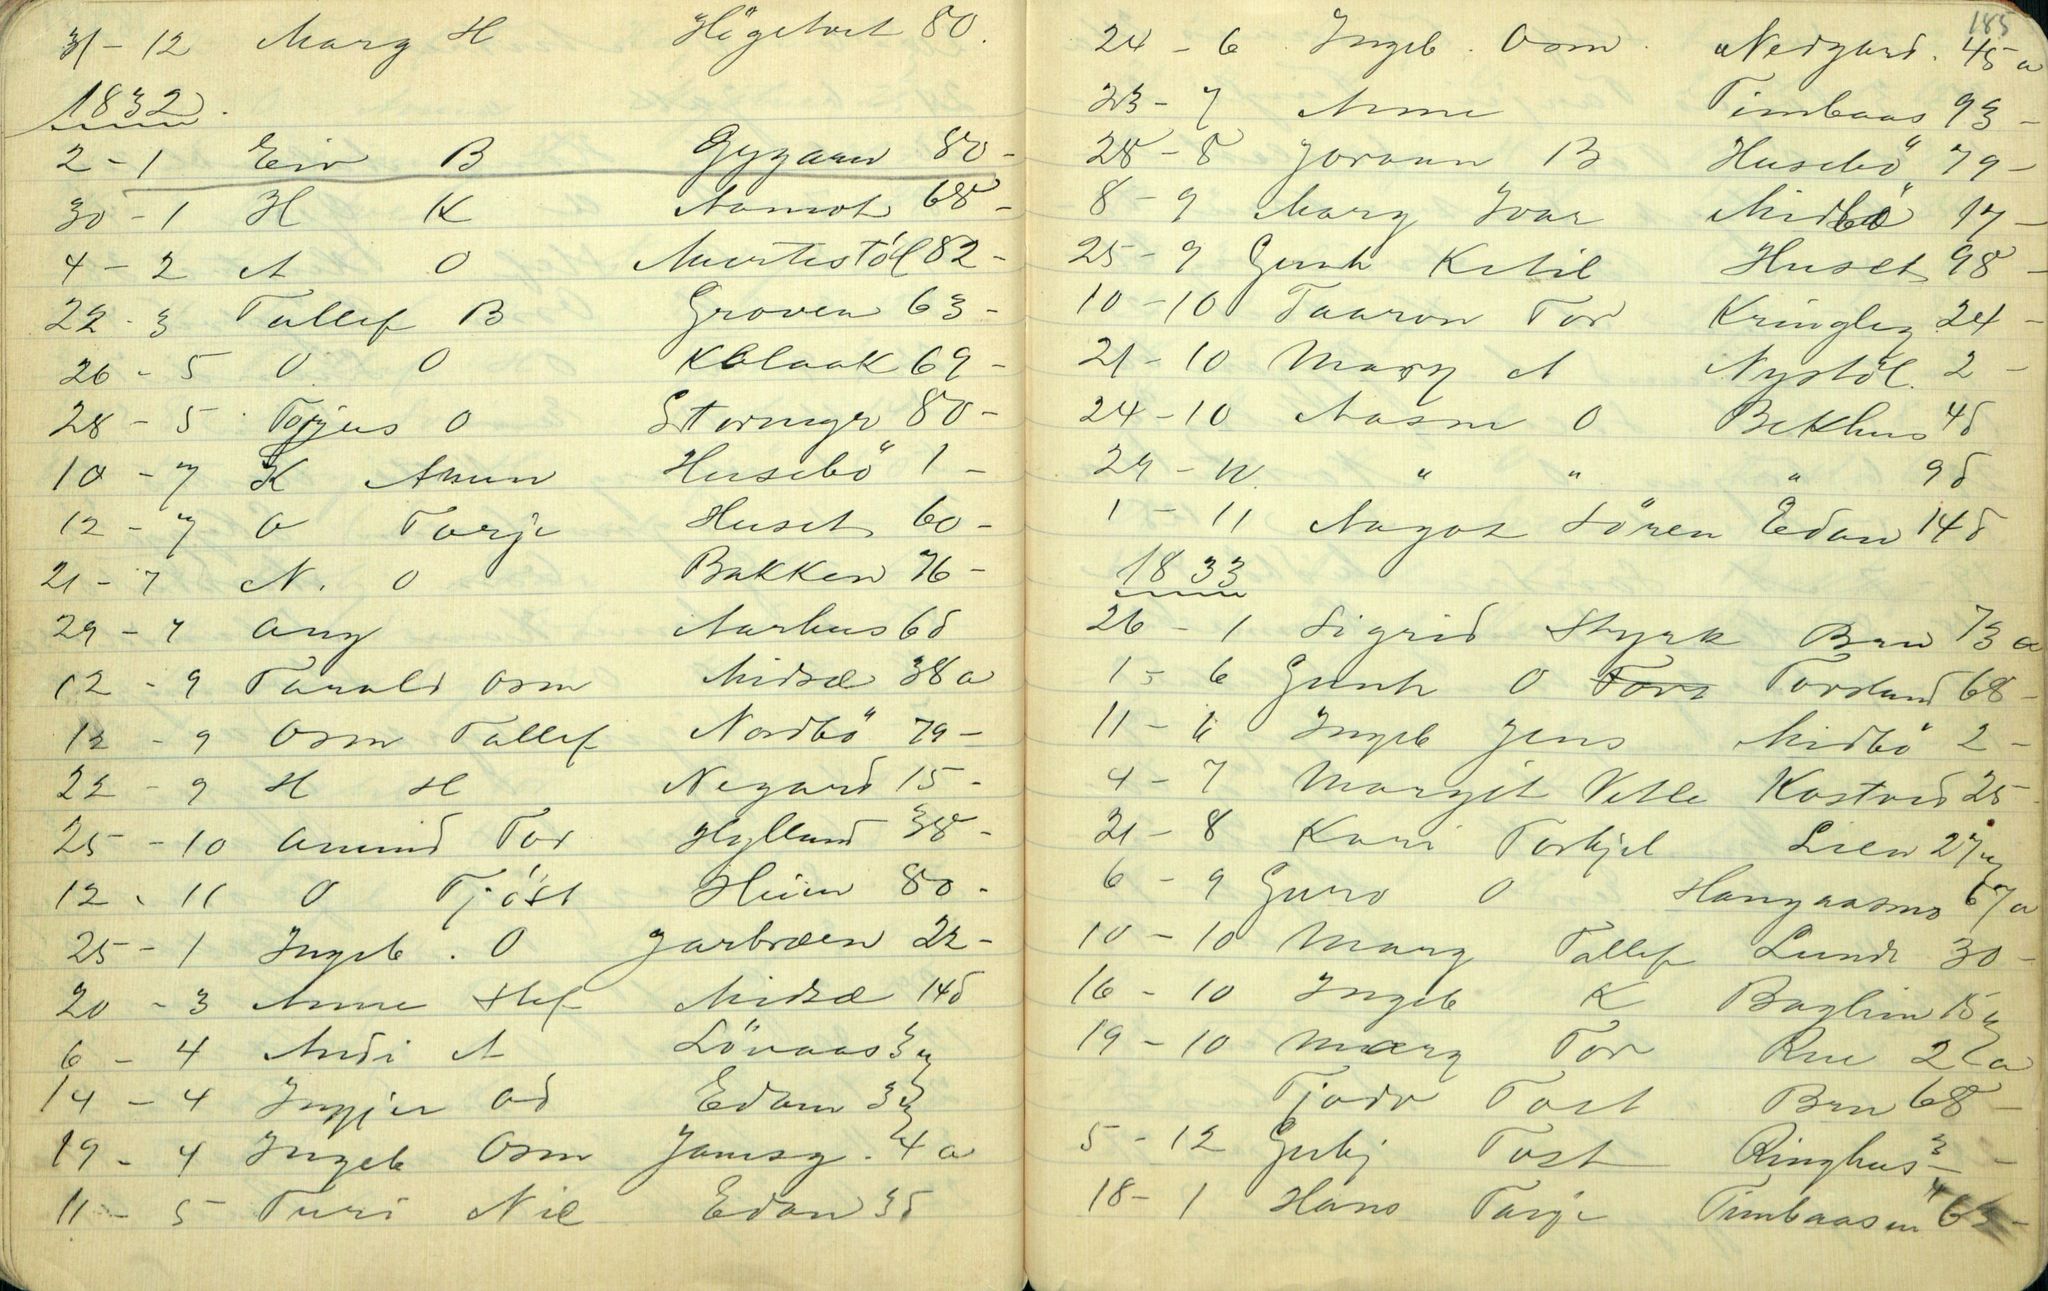 31 - 12 Marg H Högetveit 80.
1832.
2 - 1 Eiv B Gygarn 80 -
30 - 1 H K Aamot 68 -
4 - 2 A O Murtestöl 82 -
22 - 3 Tallef B Groven 63 -
26 - 5 O O Kblaak 69 -
28 - 5 Torjus O Stormyr 80 -
10 - 7 K Amun Husebö 1 -
12 - 7 O Torje Huset 60 -
21 - 7 N. O Bakken 76 -
29 - 7 Ong Aarhus 6 d
12 - 9 Tarald Osm Midbö 38 a
12 - 9 Osm Tallef Nordbö 79 -
22 - 9 H H Negard 15 -
25 - 10 Amund Tor Hylland 38 -
12 - 11 O Tjöst Heim 80 -
25 - 1 Ingeb. O Jarbröen 22 -
20 - 3 Anne Stef Midbö 14 d
6 - 4 Andi A Lövaas 3 u
14 - 4 Ingjer Od Edann 3 u
19 - 4 Ingeb Osm Jamsg. 4 a
11 - 5 Turi Nil Edan 3 d
185
24 - 6 Ingeb. Osm. Nedgard. 45 a
23 - 7 Anne Timbaas 93 -
28 - 8 Joronn B Husebö 79 -
8 - 9 Marg Ivar Midbö 17 -
25 - 9 Gunh Ketil Huset 98 -
10 - 10 Taaron Tor Kringleg 24 -
21 - 10 Marg A Nystöl. 2 -
24 - 10 Aasne O Bekhus 4 d
29 - 10. " " " 9 d
1 - 11 Aagot Sören Edan 14 d
1833
26 - 1 Sigrid Styrk Bru 73 a
1 - 6 Gunh O Tors Torslund 68 -
11 - 6 Ingeb Jens Midbö 2 -
4 - 7 Margit Vetle Kostved 25 -
21 - 8 Kari Torkjel Lien 27 u
6 - 9 Guro O Haugaasmo 67 a
10 - 10 Marg Tallef Lunde 30 -
16 - 10 Ingeb K Böglim 15 u
19 - 10 Marg Tor Rue 2 a
Tjodv Tost Bru 68 -
5 - 12 Gubj Tost Ringhus 3/4 -
18 - 1 Hans Tarje Timbaasen 63 -